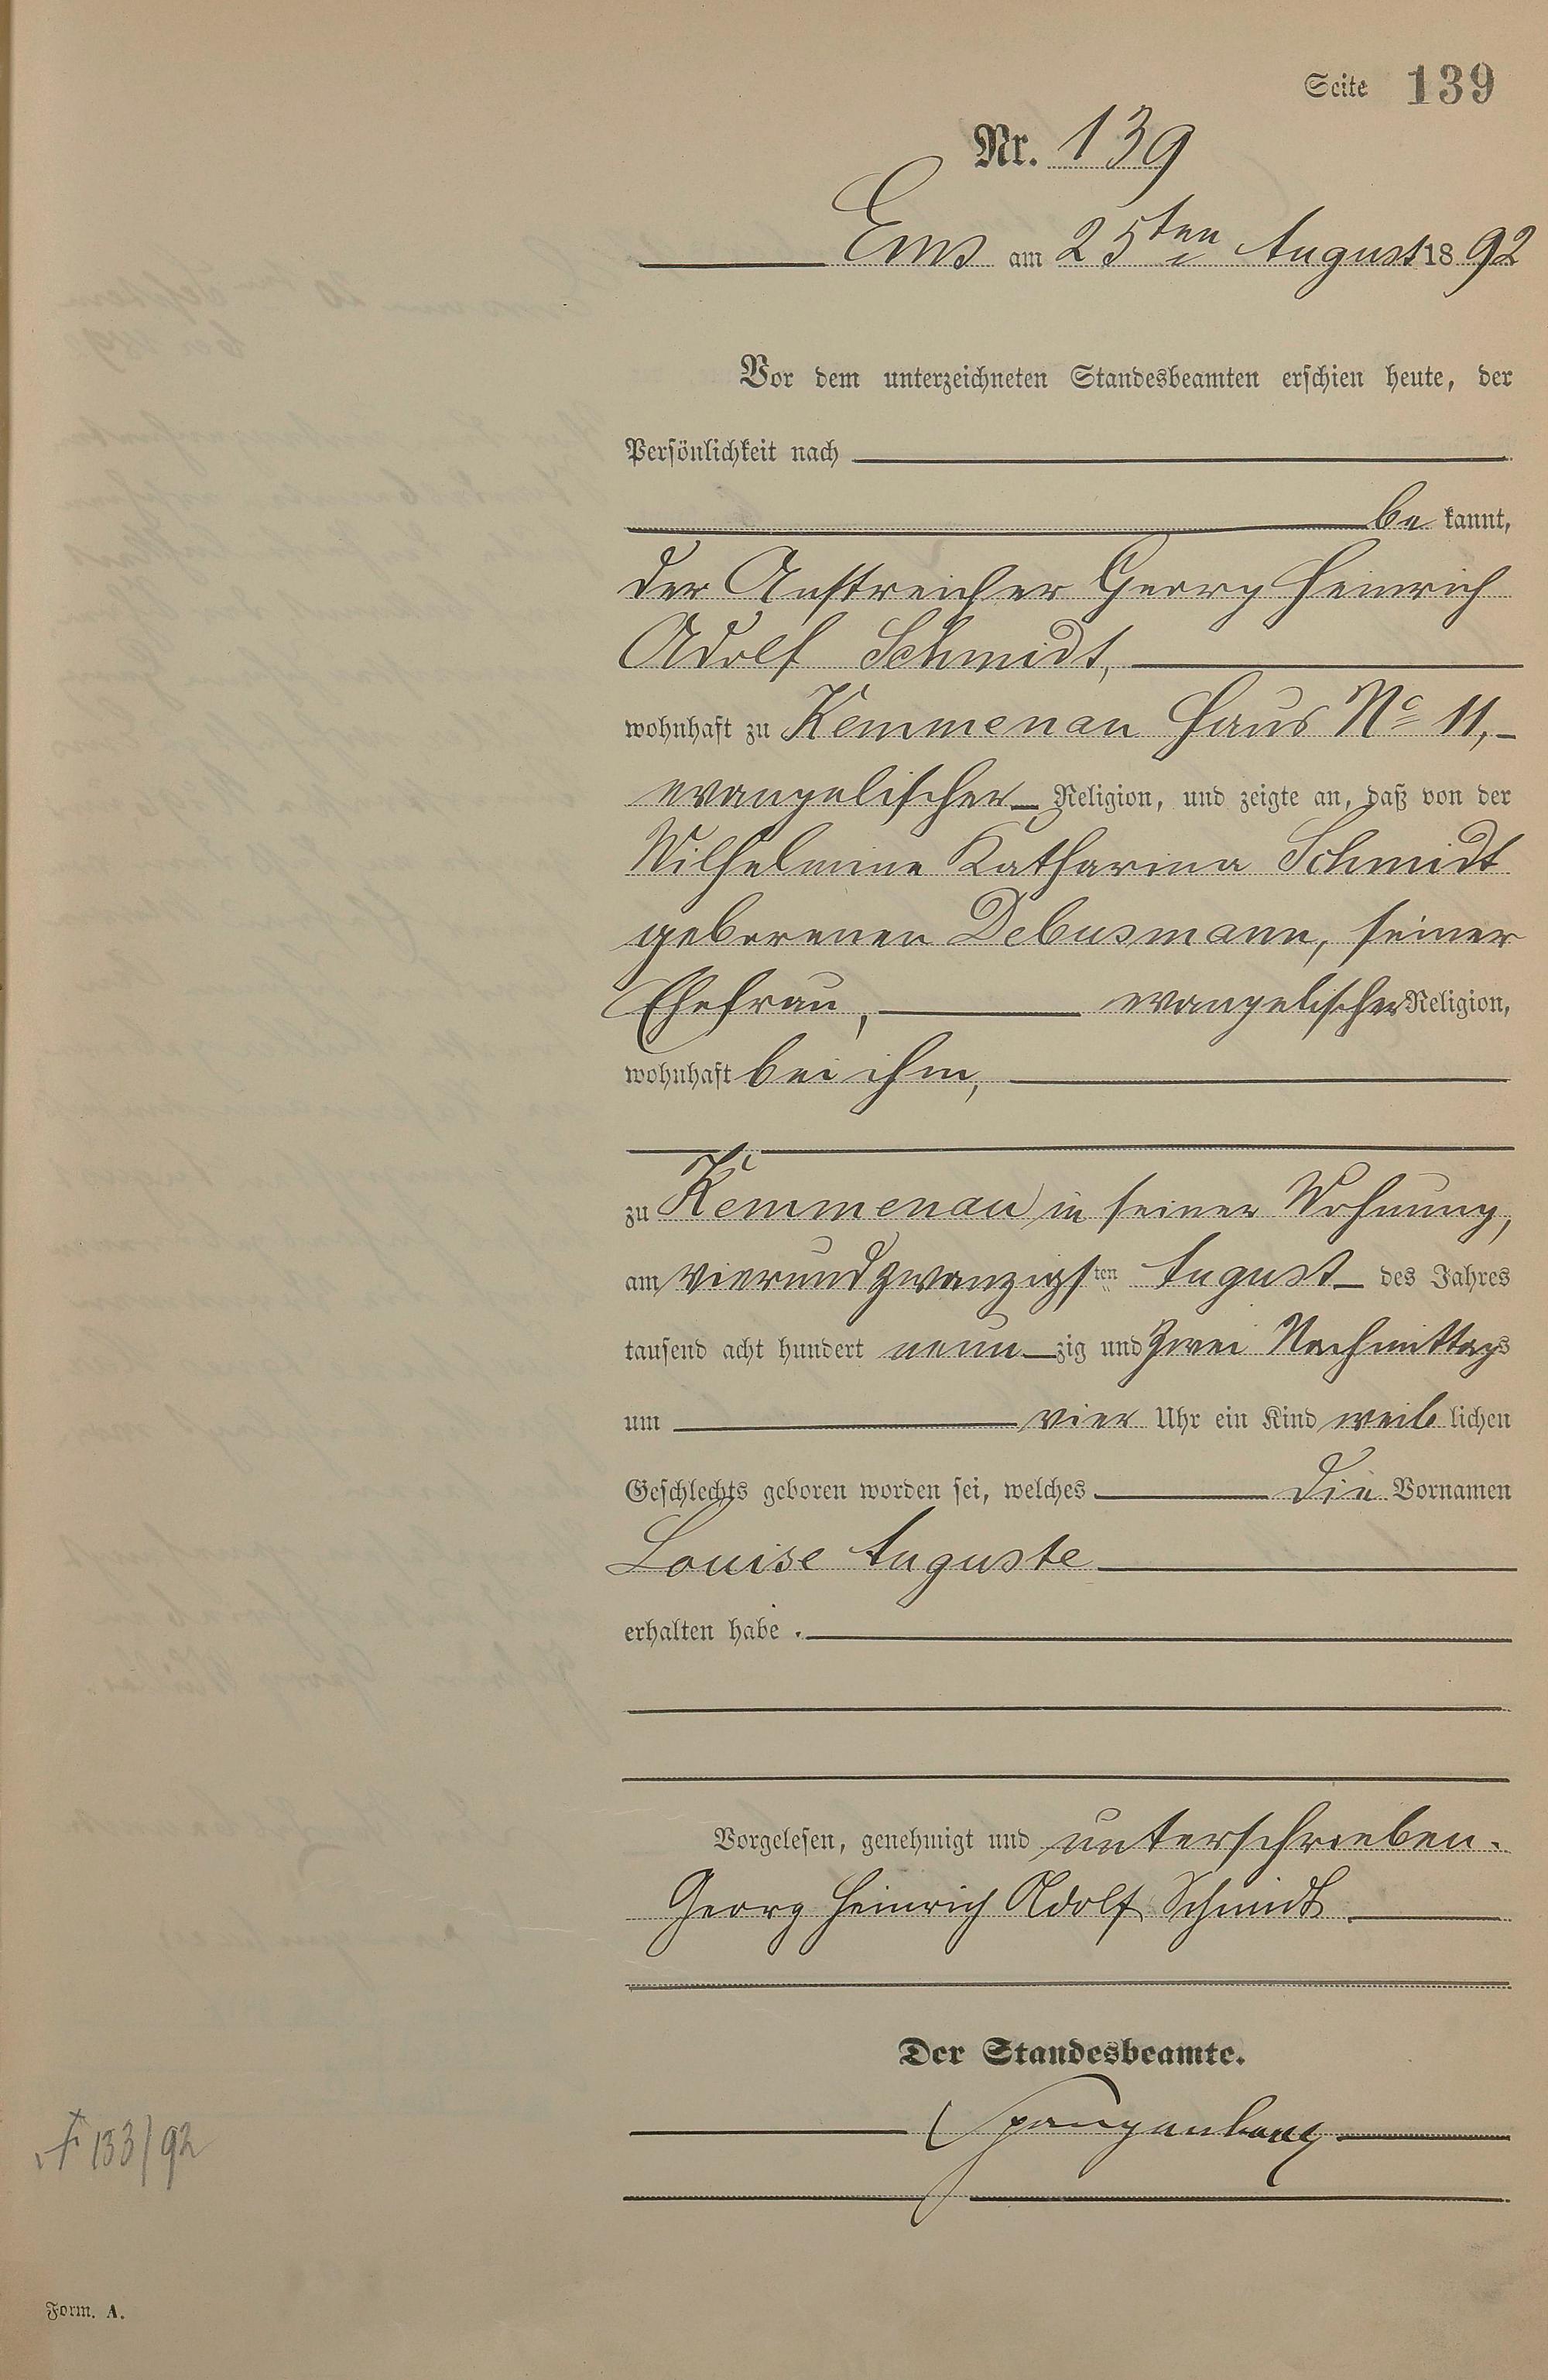 Seite 139
Nr. 139
Ems am 25ten August 1892
Vor dem unterzeichneten Standesbeamten erschien heute, der
Persönlichkeit nach
bekannt,
der Anstreicher Georg Heinrich
Adolf Schmidt,
wohnhaft zu Kemmenau Haus No 11,
evangelischer Religion, und zeigte an, daß von der
Wilhelmine Katharina Schmidt
geborenen Debusmann, seiner
Ehefrau, evangelischer Religion,
wohnhaft bei ihm,
zu Kemmenau in seiner Wohnung,
am vierundzwanzigsten August des Jahres
tausend acht hundert neunzig und zwei Nachmittags
um vier Uhr ein Kind weiblichen
Geschlechts geboren worden sei, welches die Vornamen
Louise Auguste
erhalten habe.
Vorgelesen, genehmigt und unterschrieben.
Georg Heinrich Adolf Schmidt
Der Standesbeamte.
Spangenberg
† 133/92
Form. A.